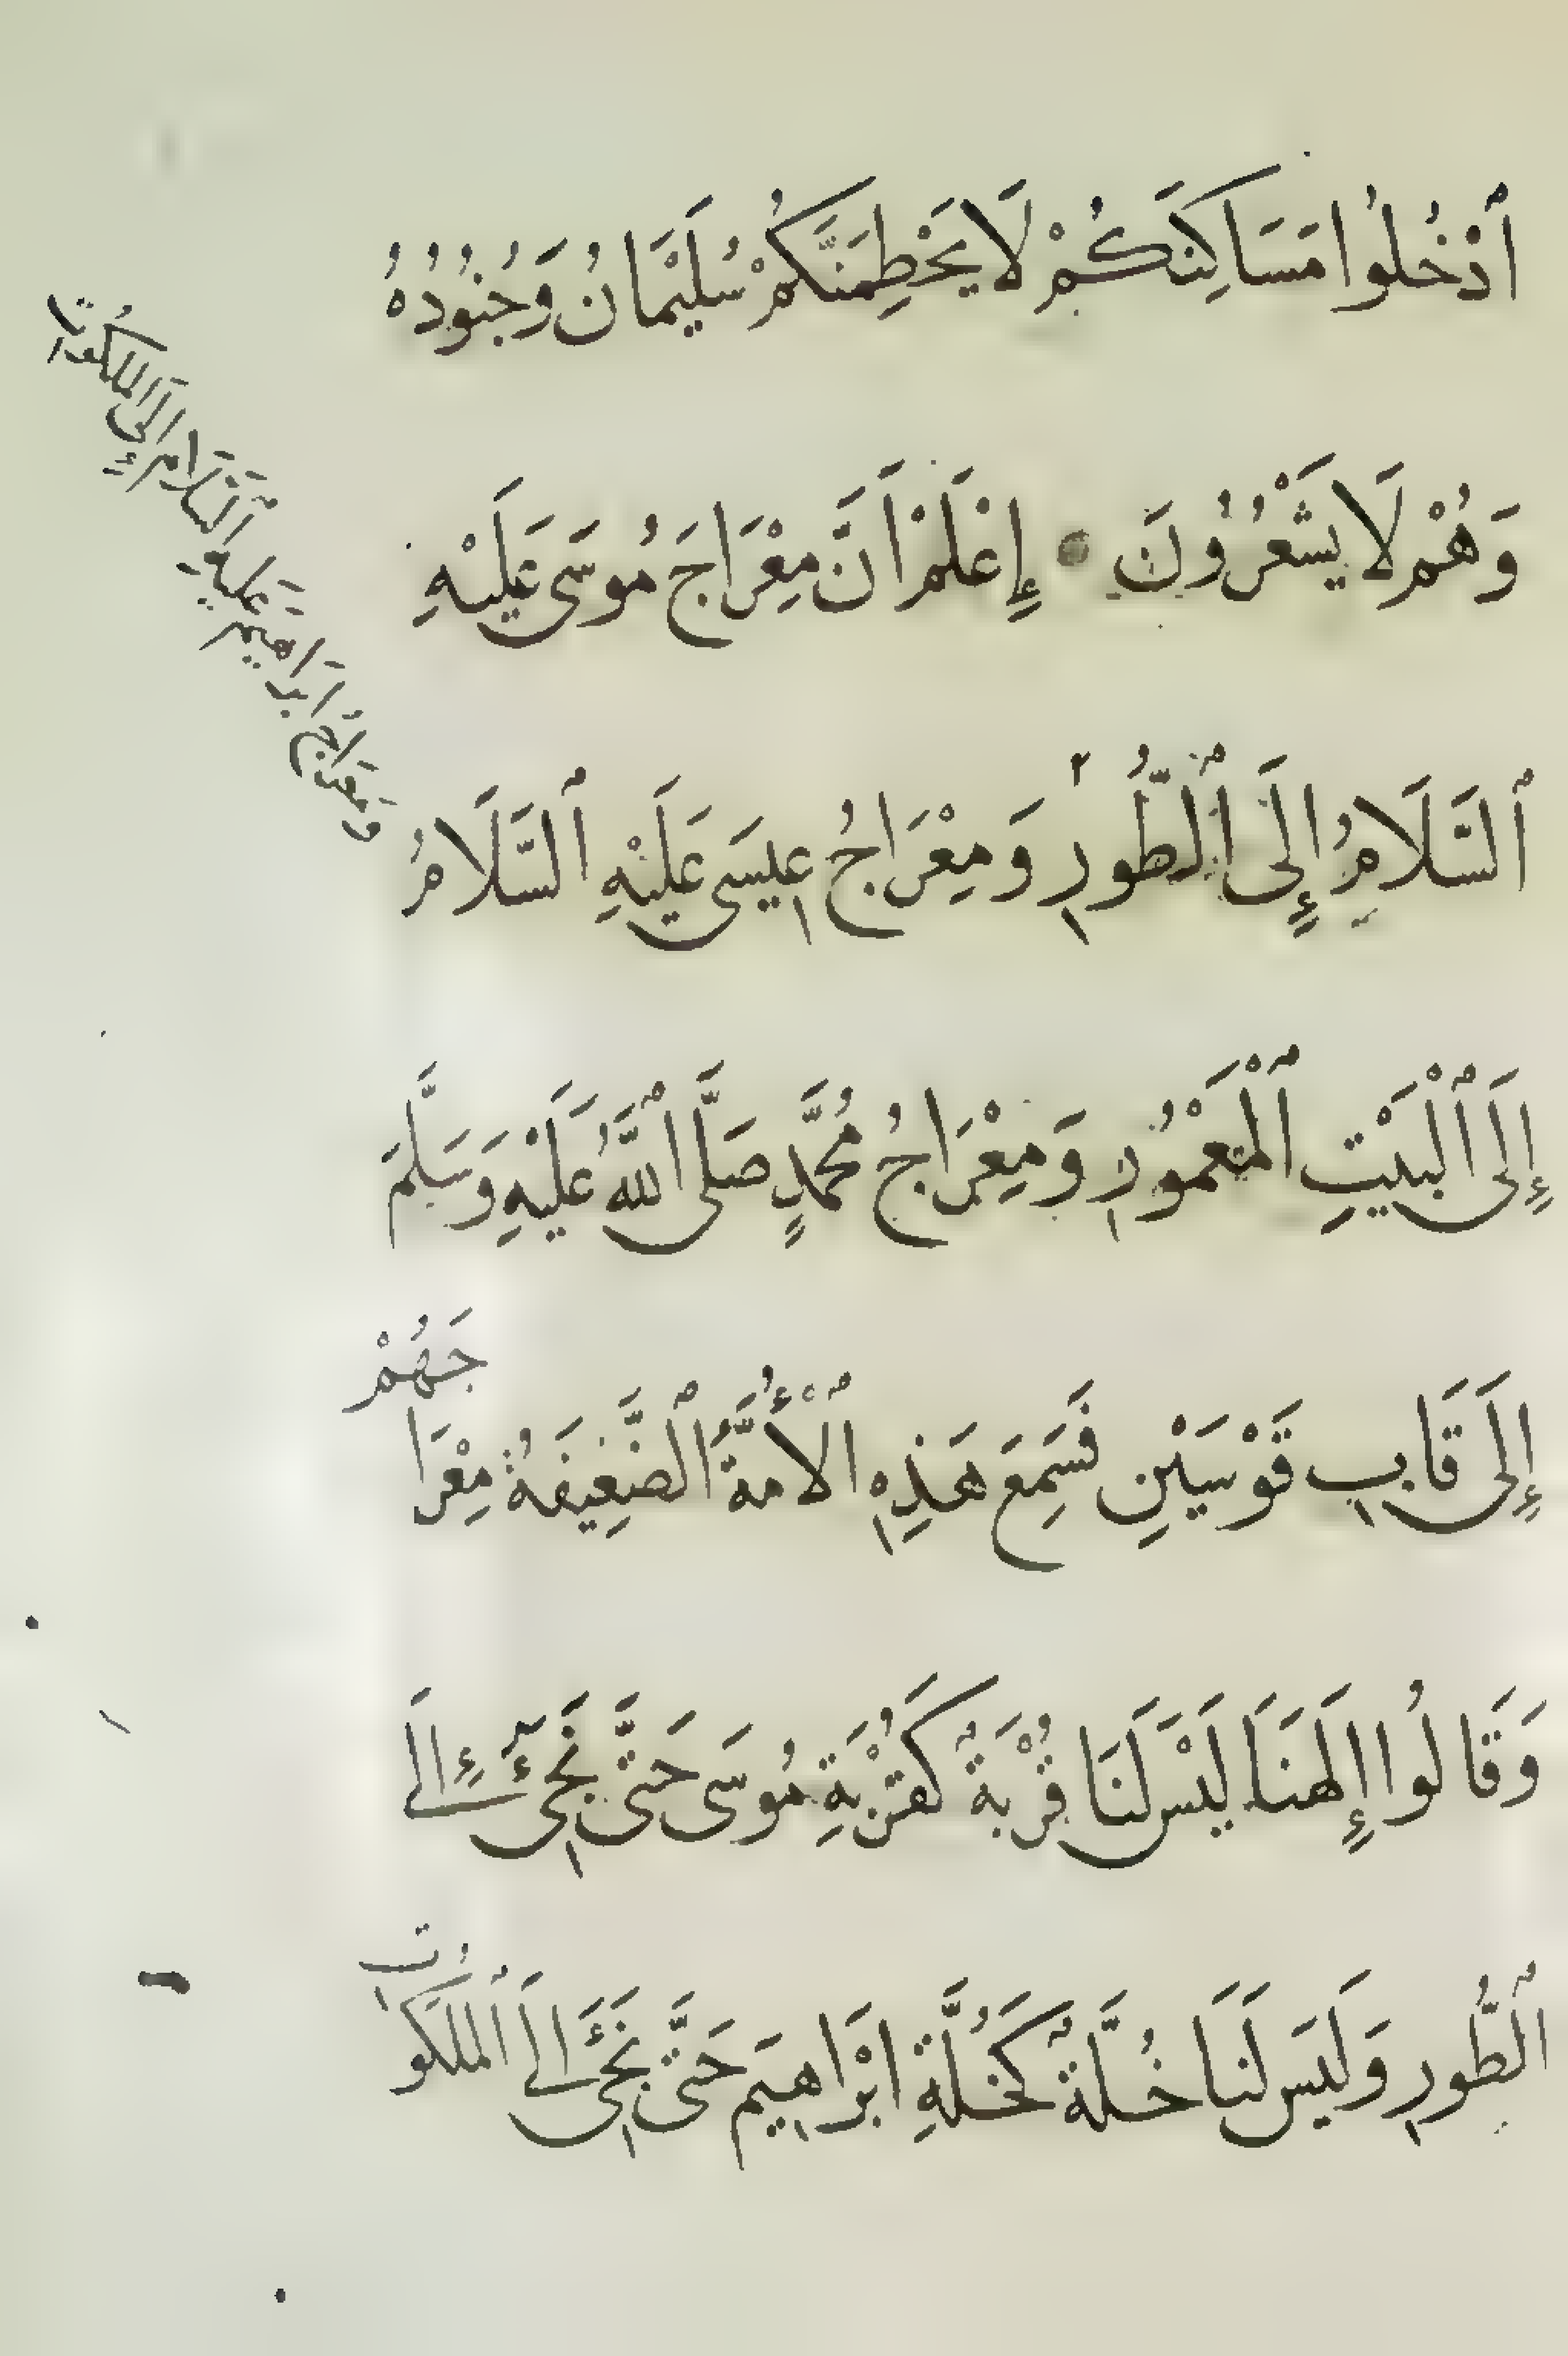 أُدْخُلُوا مَسَاكِنَكُمْ لَا يَحْطِمَنَّكُمْ سُلَيْمَانُ وَجُنُودُهُ
وَهُمْ لَا يَشْعُرُونَ • إِعْلَمْ اَنَّ مِعْرَاجَ مُوسَى عَلَيْهِ
ٱلسَّلَامُ إِلَى ٱلطُّورِ وَمِعْرَاجُ عِيسَى عَلَيْهِ ٱلسَّلَامُ
وَمَعْرَاجُ ابْرَاهِيمَ عَلَيْهِ ٱلسَّلَام إِلَى الْمَلَكُوتِ
إِلَى ٱلْبَيْتِ ٱلْمَعْمُورِ وَمِعْرَاجُ مُحَمَّدٍ صَلَّى ٱللَّهُ عَلَيْهِ وَسَلَّمَ
إِلَى قَابِ قَوْسَيْنِ فَسَمِعَ هَذِهِ ٱلْأُمَّةُ ٱلضَّعِيفَةُ مِعْرَاجَهُمْ
وَقَالُوا إِلَهَنَا لَيْسَ لَنَا قُرْبَةٌ كَقُرْبَةِ مُوسَى حَتَّى نَجِىَٔ إِلَى
ٱلطُّورِ وَلَيسَ لَنَا خُلَّةٌ كَخُلَّةِ ابْرَاهِيمَ حَتَّى نَجِىَٔ الَى ٱلمَلَكُوتِ